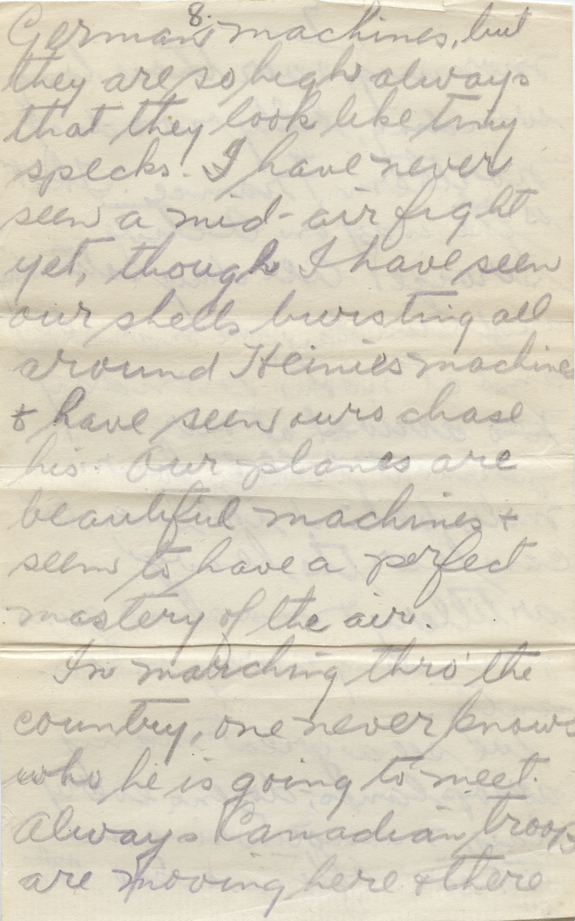 8.
German machines, but
they are so high always
that they look like tiny
specks. I have never
seen a mid-air fight
yet, though I have seen
our shells bursting all
around Heinies machines
& have seen ours chase
his. Our planes are
beautiful machines +
seem to have a perfect
mastery of the air.
In marching thro' the
country, one never knows
who he is going to meet.
Always Canadian troops
are moving here & there